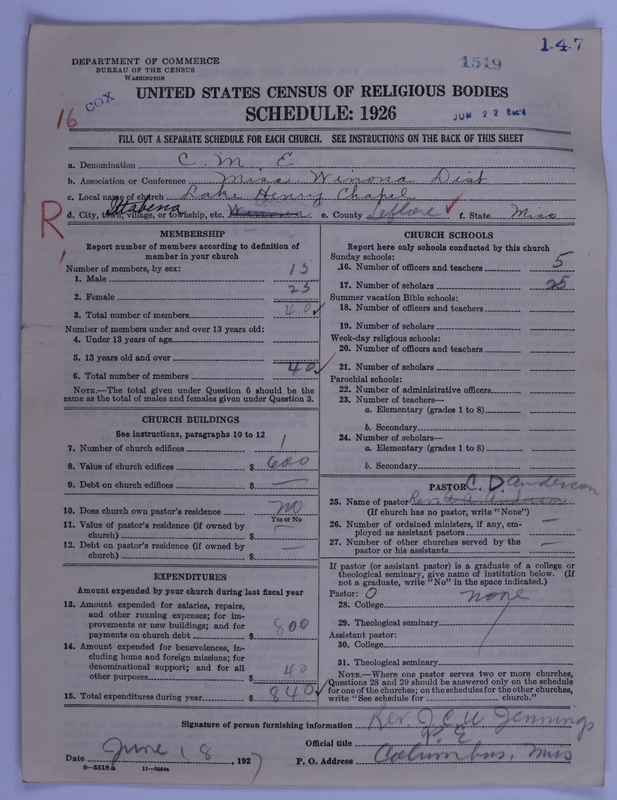 1-4-7
DEPARTMENT OF COMMERCE
BUREAU OF THE CENSUS
WASHINGTON
1519
16 COX
UNITED STATES CENSUS OF RELIGIOUS BODIES
SCHEDULE: 1926
JUN 22
FILL OUT A SEPARATE SCHEDULE FOR EACH CHURCH. SEE INSTRUCTIONS ON THE BACK OF THIS SHEET
a. Denomination C. M. E
b. Association or Conference Miss Winona Dist
c. Local name of church Lake Henry Chapel
d. City, town, village, or township, etc. Ittabena Winona e. County Leflore f. State Miss
R
MEMBERSHIP
Report number of members according to definition of
member in your church
Number of members, by sex:
1. Male 15
2. Female 25
3. Total number of members 40
Number of members under and over 13 years old:
4. Under 13 years of age
5. 13 years old and over
6. Total number of members 40
NOTE.—The total given under Question 6 should be
same as the total of males and females given under Question 3.
CHURCH BUILDINGS
See instructions, paragraphs 10 to 12
7. Number of church edifices 1
8. Value of church edifices $ 600
9. Debt on church edifices $ —
10. Does church own pastor's residence No
Yes or No
11. Value of pastor's residence (if owned by
church) $ —
12. Debt on pastor's residence (if owned by
church) $ —
EXPENDITURES
Amount expended by your church during last fiscal year
13. Amount expended for salaries, repairs,
and other running expenses; for im-
provements or new buildings; and for
payments on church debt $ 800
14. Amount expended for benevolences, in-
cluding home and foreign missions; for
denominational support; and for all
other purposes $ 40
15. Total expenditures during year $ 840
CHURCH SCHOOLS
Report here only schools conducted by this church
Sunday schools:
16. Number of officers and teachers 5
17. Number of scholars 25
Summer vacation Bible schools:
18. Number of officers and teachers
19. Number of scholars
Week-day religious schools:
20. Number of officers and teachers
21. Number of scholars
Parochial schools:
22. Number of administrative officers
23. Number of teachers—
a. Elementary (grades 1 to 8)
b. Secondary
24. Number of scholars—
a. Elementary (grades 1 to 8)
b. Secondary
PASTOR C. D. Anderson
25. Name of pastor Rev. Anderson
(If church has no pastor, write "None")
26. Number of ordained ministers, if any, em-
ployed as assistant pastors —
27. Number of other churches served by the
pastor or his assistants —
If pastor (or assistant pastor) is a graduate of a college or
theological seminary, give name of institution below. (If
not a graduate, write "No" in the space indicated.)
Pastor: O
28. College none
29. Theological seminary
Assistant pastor:
30. College
31. Theological seminary
NOTE.—Where one pastor serves two or more churches,
Questions 28 and 29 should be answered only on the schedule
for one of the churches; on the schedules for the other churches,
write "See schedule for church."
Signature of person furnishing information Rev. J. C. W Jennings
Official title P. E
Date June 18, 1927 P. O. Address Columbus, Miss
8—5518a 11—9064a